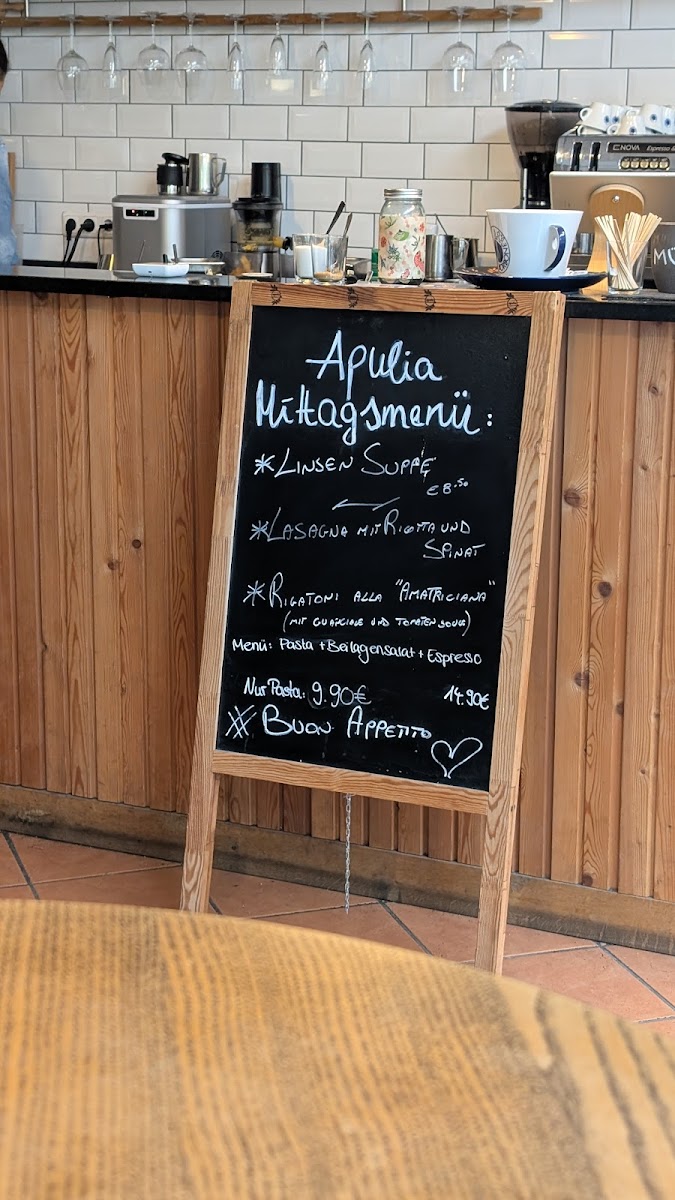 ENOVA Espresso
Apulia
Mittagsmenü:
* LINSEN SUPPE
€ 8.50
* LASAGNA MIT RIGOTTA UND
SPINAT
* RIGATONI ALLA "AMATRICIANA"
(MIT GUANCIALE UND TOMATEN SOUCE)
Menü: Pasta + Beilagensalat + Espresso
Nur Pasta: 9.90€ 14.90€
BUON APPETITO